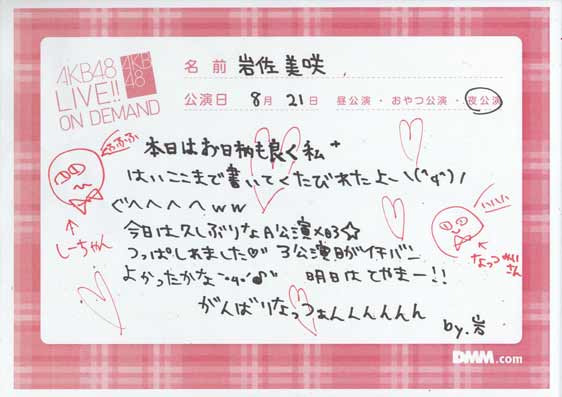 AKB48
LIVE!!
ON DEMAND
AKB
48
名前 岩佐美咲
公演日 8月21日 昼公演・おやつ公演・夜公演
本日はお日柄も良く私
はいここまで書いてくたびれたよー\(^q^)/
ぐへへへへww
今日は久しぶりなA公演×3☆
つっぱしれました♡ 3公演目がイチバン
よかったかな 明日はてやまー!!
がんばりなっつぁんんんんん
by.岩
うふふふ
しーちゃん
ハハハハ
なっつ
さん
DMM.com